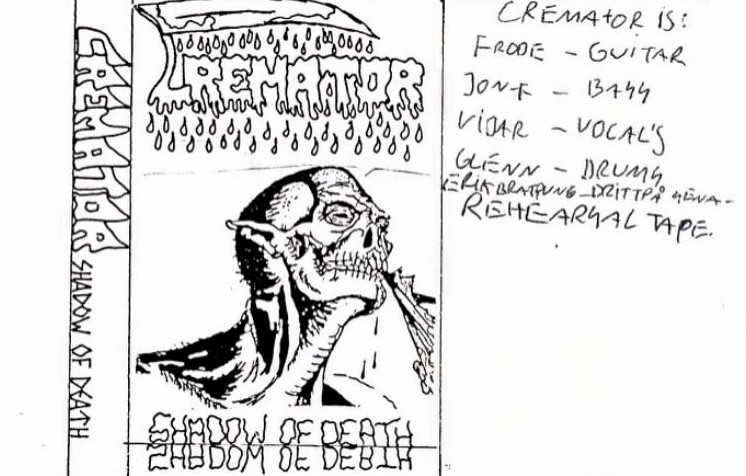 CREMATOR SHADOW OF DEATH
CREMATOR
SHADOW OF DEATH
CREMATOR IS:
FRODE - GUITAR
- BASS
VIDAR - VOCAL'S
GLENN - DRUMS
ERIK BRATTUNG - DRITTPÅ SENA-
REHEARSAL TAPE.